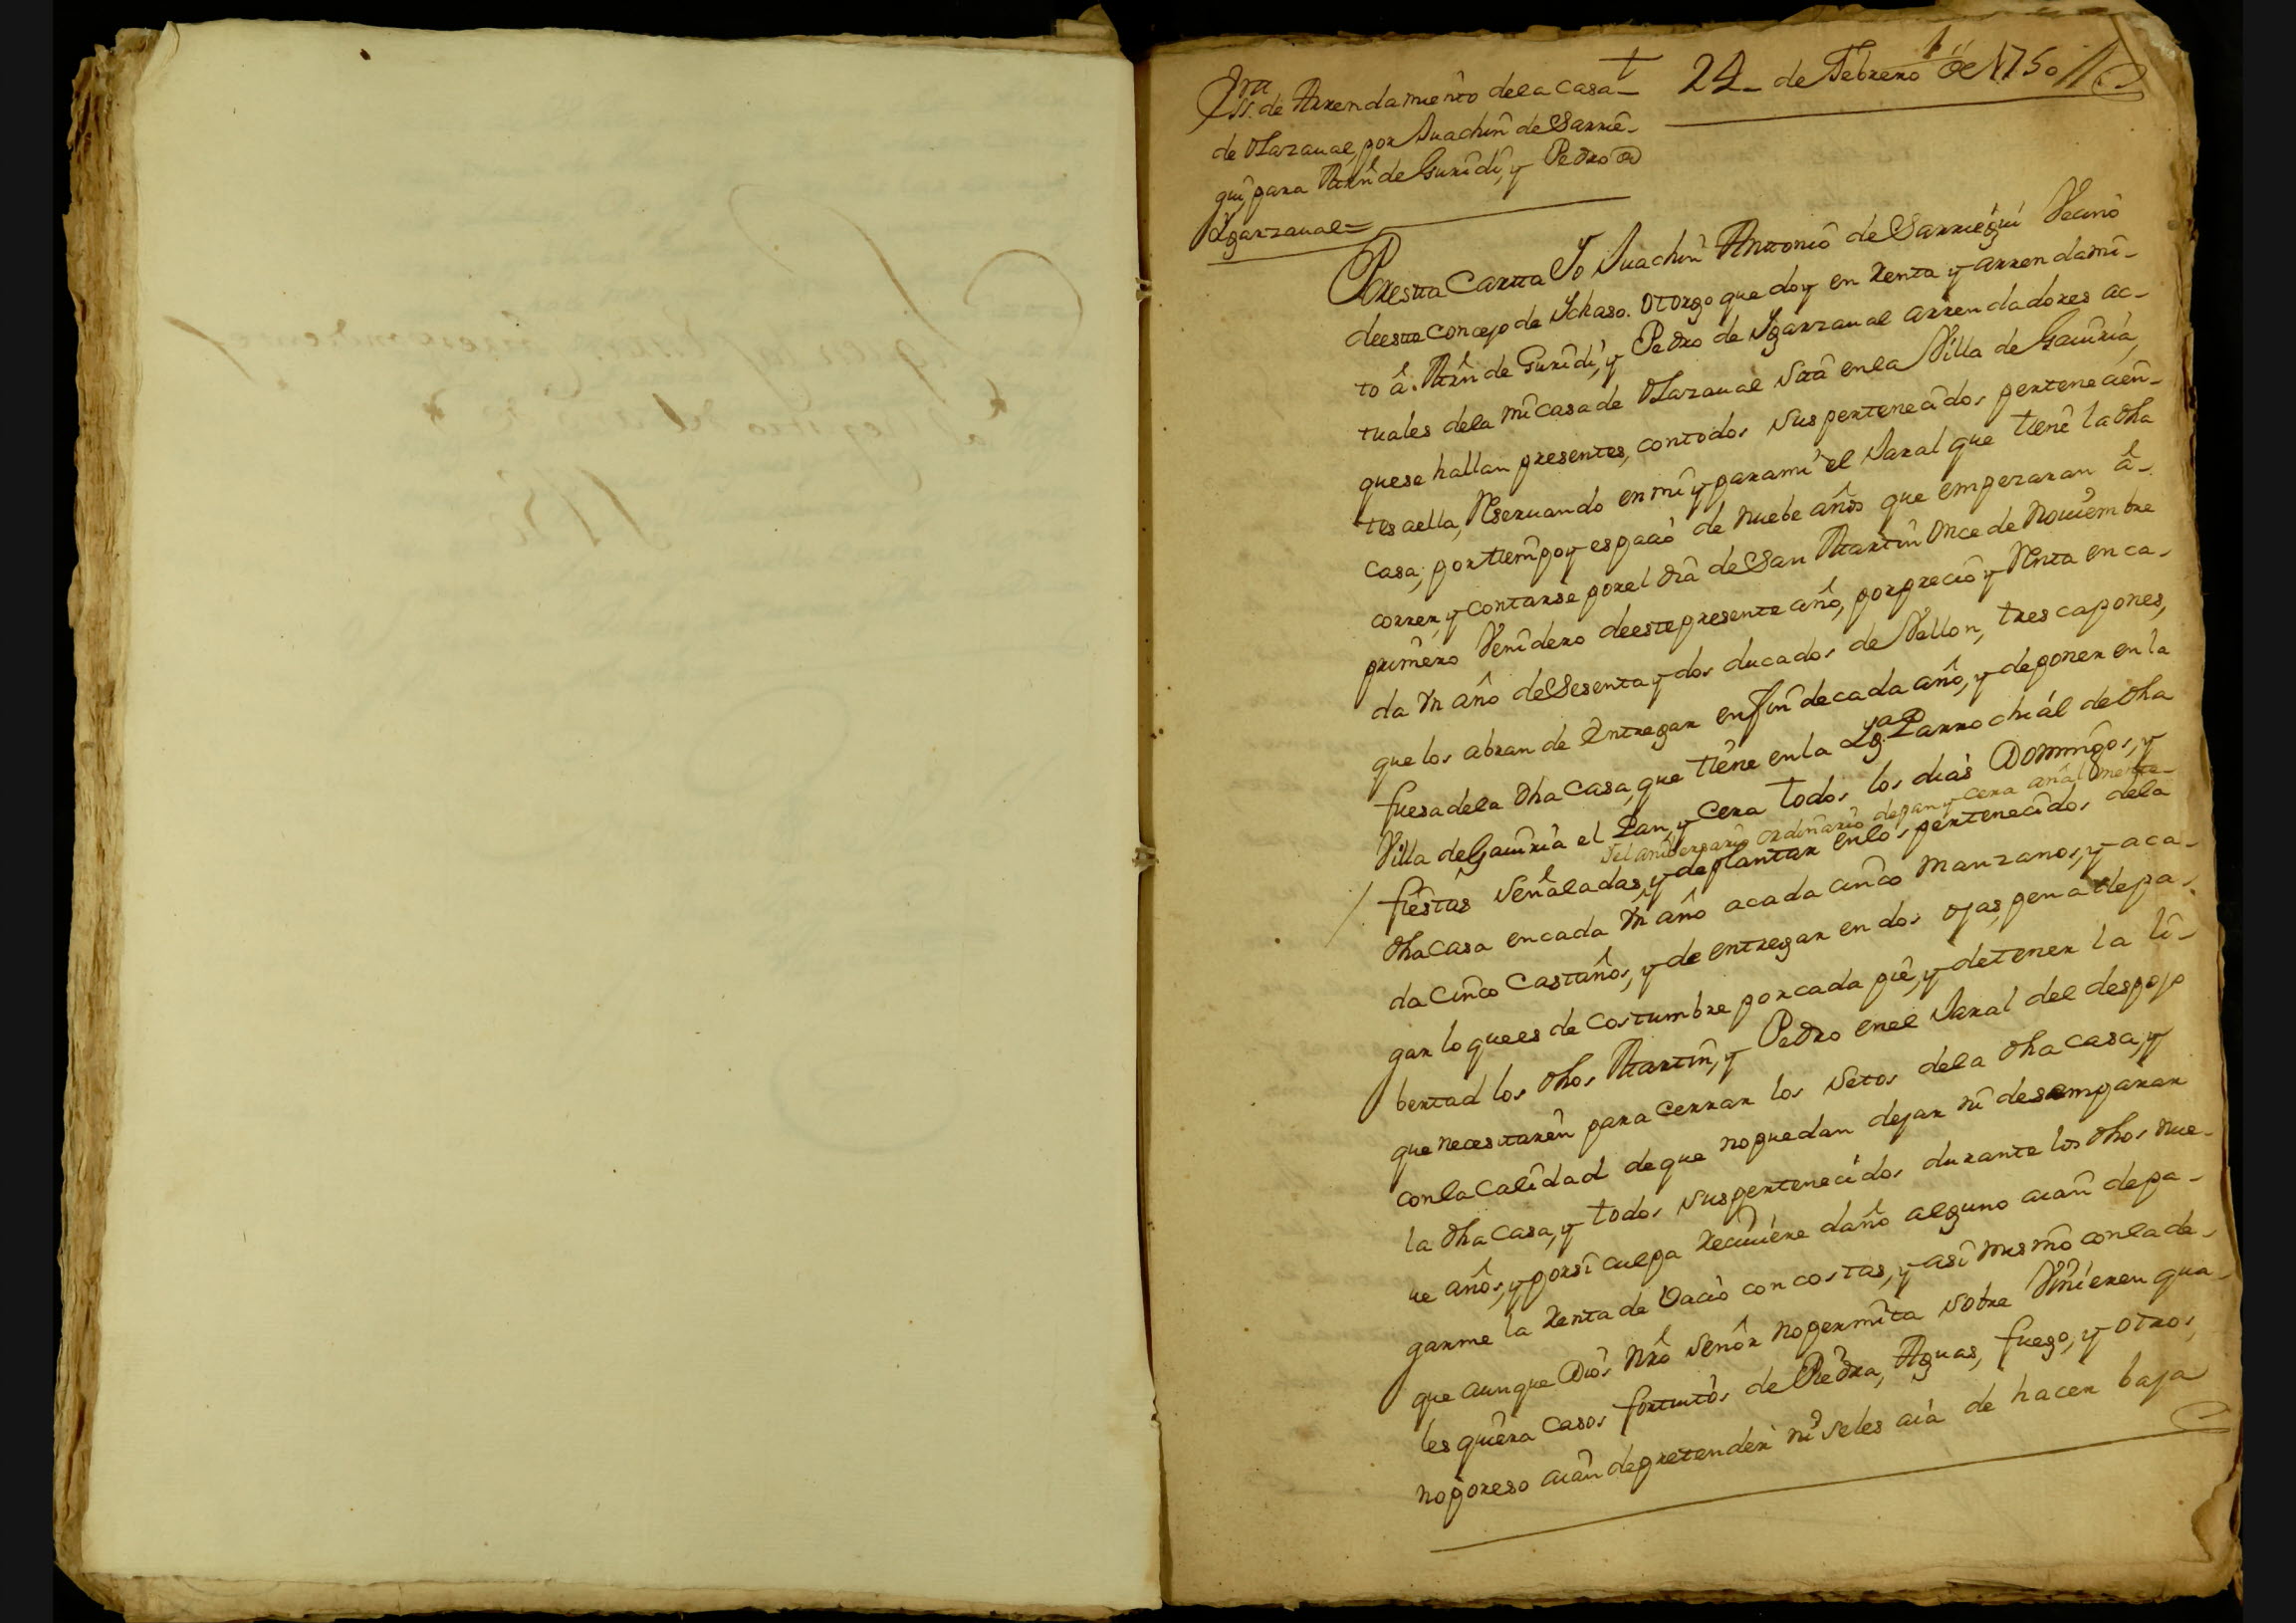 Ess.ra de Arrendamiento dela Casa
de Olazaual, por Juachin de Sarrie-
gui, para Mrn de Guridi, y Pedro de
Ygarzaual=
24_ de Febrero de 1750
1
Por esta Carta Yo Juachin Antonio de Sarriegui Vecino
de este Concejo de Ychaso. Otorgo que doy en Renta y arrendami-
to â. Mrn de Guridi, y Pedro de Ygarzaual arrendadores ac-
tuales dela mi casa de Olazaual sita en la Villa de Gauiria,
que se hallan presentes, con todos sus pertenecidos pertenecien-
tes a ella, Reseruando en mi y para mi el Jaral que tiene la dha
Casa; por tiempo y espacio de nuebe años que empezaran â
correr, y contarse por el dia de San Martin Once de Nouiembre
primero Venidero de este presente año, por precio y Renta en ca-
da un año de Sesenta y dos ducados de Vellon, tres capones,
que los abran de Entregar en fin de cada año, y de poner en la
fuesa dela dha Casa, que tiene en la Yg.a Parrochial de dha
Villa de Gauiria el Pan, y Cera todos los dias Domingos, y
/ fiestas Señaladas, y de plantar en los pertenecidos dela
y el aniberario ordinario de pan y cera añalmente
dha Casa en cada un año a cada cinco manzanos, y a ca-
da Cinco Castaños, y de entregar en dos ojas, pena de pa-
gar lo que es de Costumbre por cada pie, y de tener la li-
bertad los dhos Martin, y Pedro en el Jaral del despojo
que necesitaren para cerrar los Setos dela dha casa, y
con la Calidad de que no puedan dejar ni desamparar
la dha Casa, y todos sus pertenecidos durante los dhos nue-
ue años, y por si culpa reciuiere daño alguno aian de pa-
garme la renta de Vacio con costas, y asi mismo con la de
que aunque Dios Nro Señor no permita sobre Vinieren qua-
les quiera Casos fortuitos de Piedra, Aguas, fuego, y otros,
no por eso aian de pretender ni se les aia de hacer baja